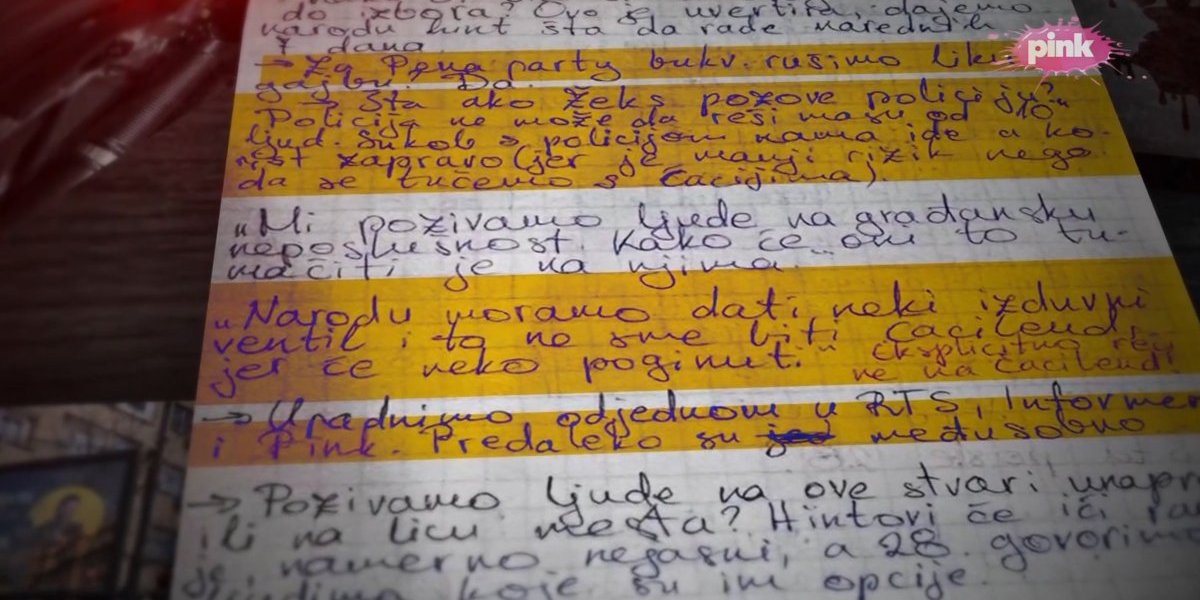 do izbora? Ovo je uvertira, dajemo
narodu hint šta da rade narednih
7 dana
→ Za Pena party bukv. rušimo
gajbu. Da.
→ Šta ako Žeks pozove policiju?
Policija ne može da reši masu od 10
ljud. Sukob s policijom nama ide u ko-
rist zapravo (jer je manji rizik nego
da se tučemo s ćacijima).
„Mi pozivamo ljude na građansku
neposlušnost. Kako će oni to tu-
mačiti je na njima.
„Narodu moramo dati neki izduvni
ventil i to ne sme biti Ćacilend,
jer će neko poginuti."
eksplicitno reći
ne na Ćacilend!
→ Upadnimo odjednom u RTS, Informer
i Pink. Predaleko su međusobno
→ Pozivamo ljude na ove stvari unapr
ili na licu mesta? Hintovi će ići
namerno negasni, a 28. govorimo
koje su im opcije.
pink